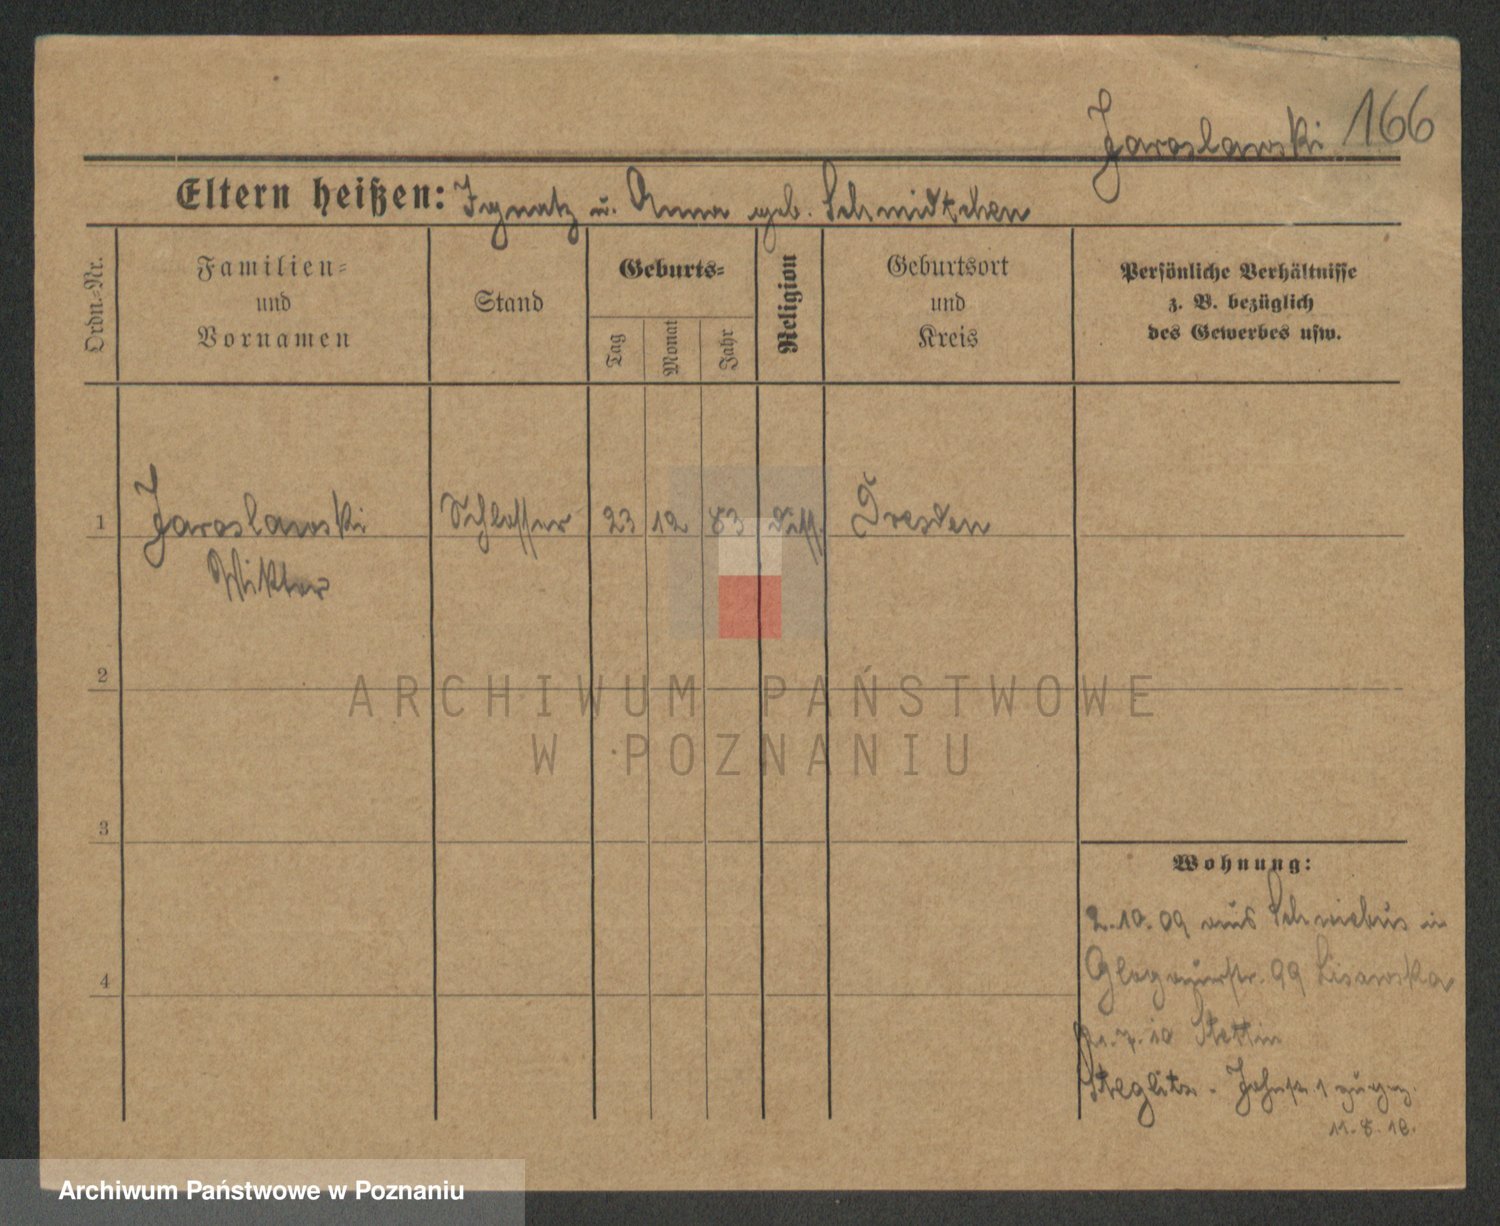 Jaroslawski 166
Eltern heißen: Ignatz u. Anna geb. Schmidtchen
Ordn.-Nr.
Familien-
und
Vornamen
Stand
Geburts-
Tag
Monat
Jahr
Religion
Geburtsort
und
Kreis
Persönliche Verhältnisse
z. B. bezüglich
des Gewerbes usw.
1 Jaroslawski Schlosser 23 12 83 diss. Dresden
Wiktor
2
ARCHIWUM PAŃSTWOWE
W POZNANIU
3
Wohnung:
2.10.09 aus Schwiebus in
Glogauerstr. 99 Lisewska
4
Stettin
Steglitz - 1
11.8.18.
Archiwum Państwowe w Poznaniu